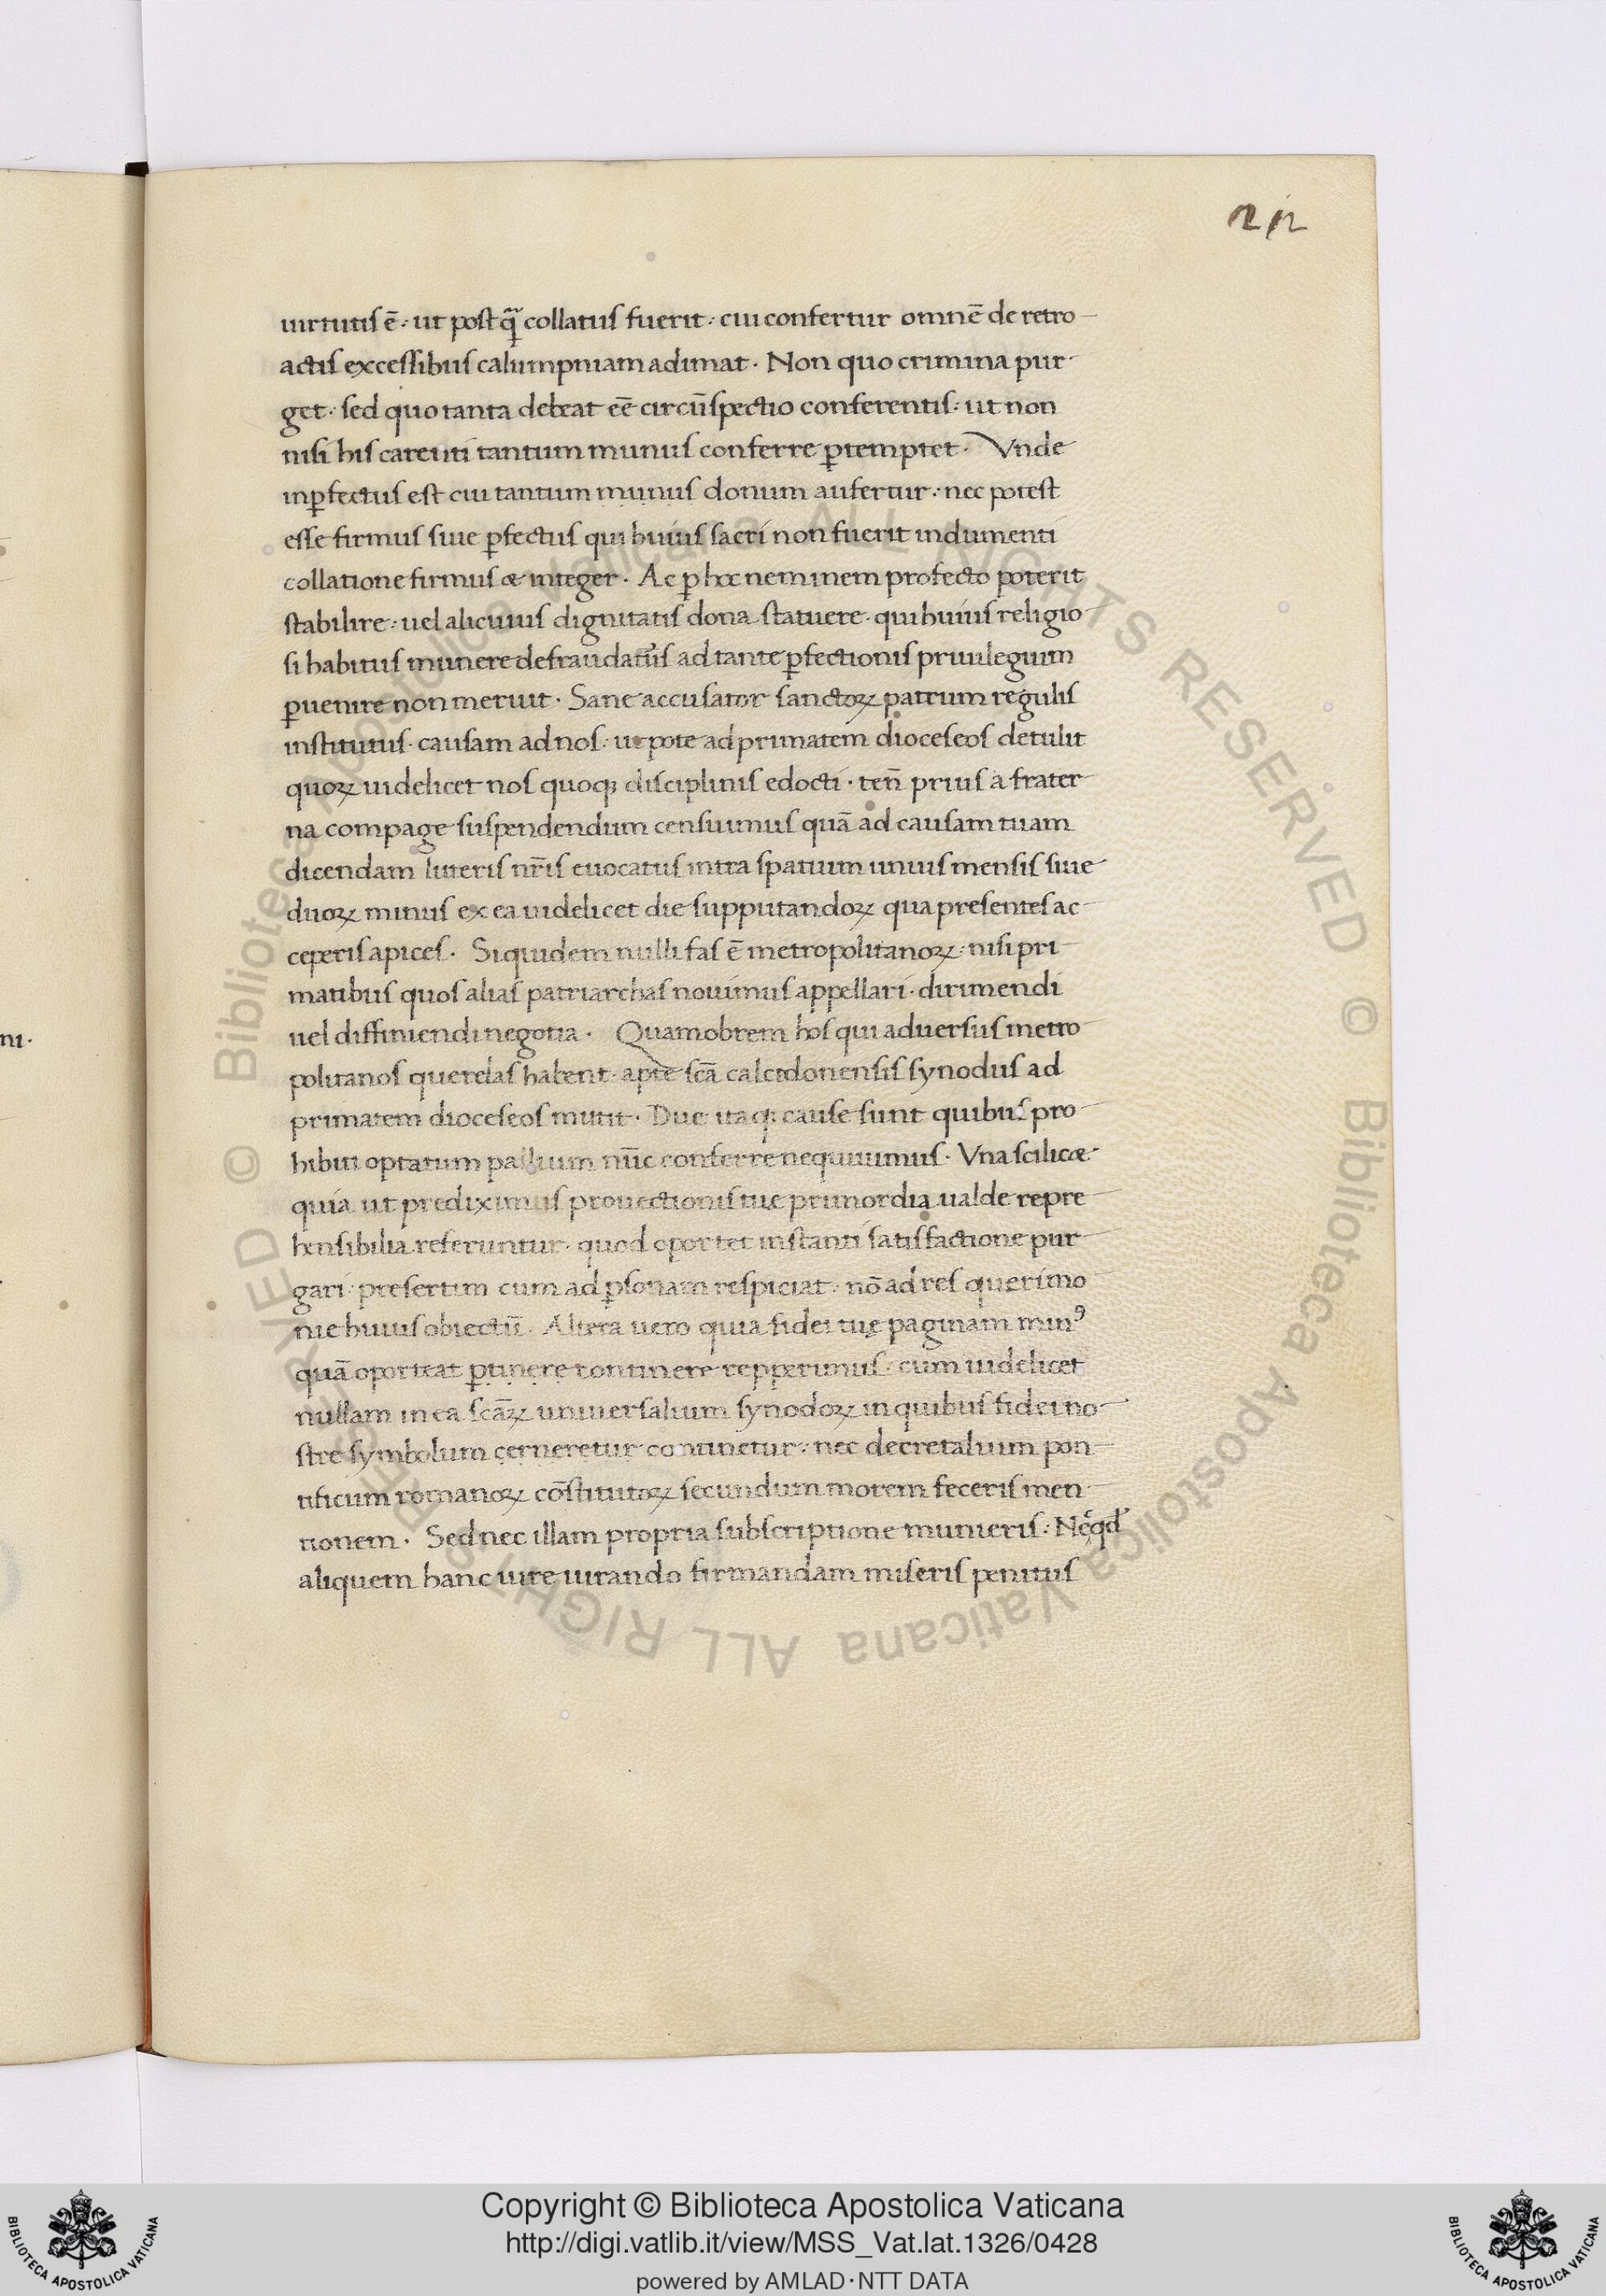 212
uirtutis ē · ut postq̄ collatus fuerit · cui confertur omnē de retro
actis excessibus calumpniam adimat · Non quo crimina pur
get · sed quo tanta debeat eē circūspectio conferentis · ut non
nisi his carenti tantum munus conferre ꝑtemptet · Vnde
inꝑfectus est cui tantum munus donum aufertur · nec potest
esse firmus siue ꝑfectus qui huius sacri non fuerit indumenti
collatione firmus & integer · Ac ꝑ hoc neminem profecto poterit
stabilire · uel alicuius dignitatis dona statuere · qui huius religio
si habitus munere defraudatus ad tante ꝑfectionis priuilegium
ꝑuenire non meruit · Sane accusator sanctoꝝ patrum regulis
institutus · causam ad nos · ut pote ad primatem dioceseos detulit
quoꝝ uidelicet nos quoq; disciplinis edocti · ten̄ prius a frater
na compage suspendendum censuimus quā ad causam tuam
dicendam litteris nr̄is euocatus intra spatium unius mensis siue
duoꝝ minus ex ea uidelicet die supputandoꝝ qua presentes ac
ceperis apices · Siquidem nulli fas ē metropolitanoꝝ · nisi pri
matibus quos alias patriarchas nouimus appellari · dirimendi
uel diffiniendi negotia · Quamobrem hos qui aduersus metro
politanos querelas habent · apte scā calcedonensis synodus ad
primatem dioceseos mittit · Due itaq; cause sunt quibus pro
hibiti optatum pallium nūc conferre nequiuimus · Vna scilic&
quia ut prediximus prouectionis tuę primordia ualde repre
hensibilia referuntur · quod oportet instanti satisfactione pur
gari · presertim cum ad ꝑsonam respiciat · nō ad res querimo
nie huius obiectū · Altera uero quia fidei tuę paginam minꝰ
quā oporteat ꝑtinere continere repperimus · cum uidelicet
nullam in ea scāꝝ uniuersalium synodoꝝ in quibus fidei no
stre symbolum cerneretur continetur · nec decretalium pon
tificum romanoꝝ cōstitutoꝝ secundum morem feceris men
tionem · Sed nec illam propria subscriptione munieris · Ne
aliquem hanc iure iurando firmandam miseris penitus
ni ·
© Biblioteca Apostolica Vaticana ALL RIGHTS RESERVED © Biblioteca Apostolica Vaticana ALL RIGHTS RESERVED
Copyright © Biblioteca Apostolica Vaticana
http://digi.vatlib.it/view/MSS_Vat.lat.1326/0428
powered by AMLAD·NTT DATA
BIBLIOTECA APOSTOLICA VATICANA
BIBLIOTECA APOSTOLICA VATICANA